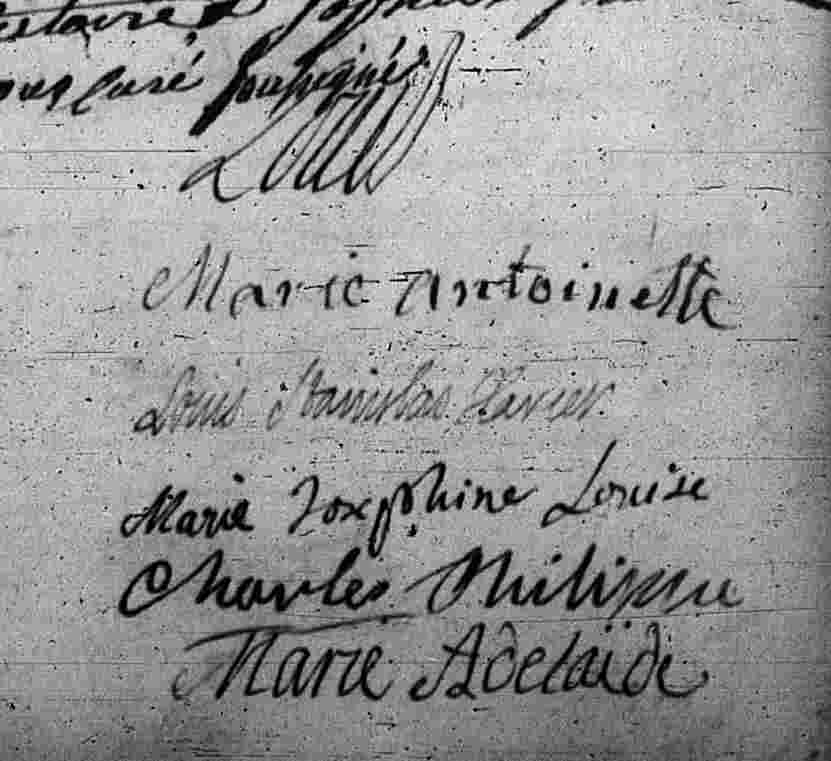 curé soussignés
Louis
Marie Antoinette
Louis Stanislas Xavier
Marie Josephine Louise
Charles Philippe
Marie Adelaïde